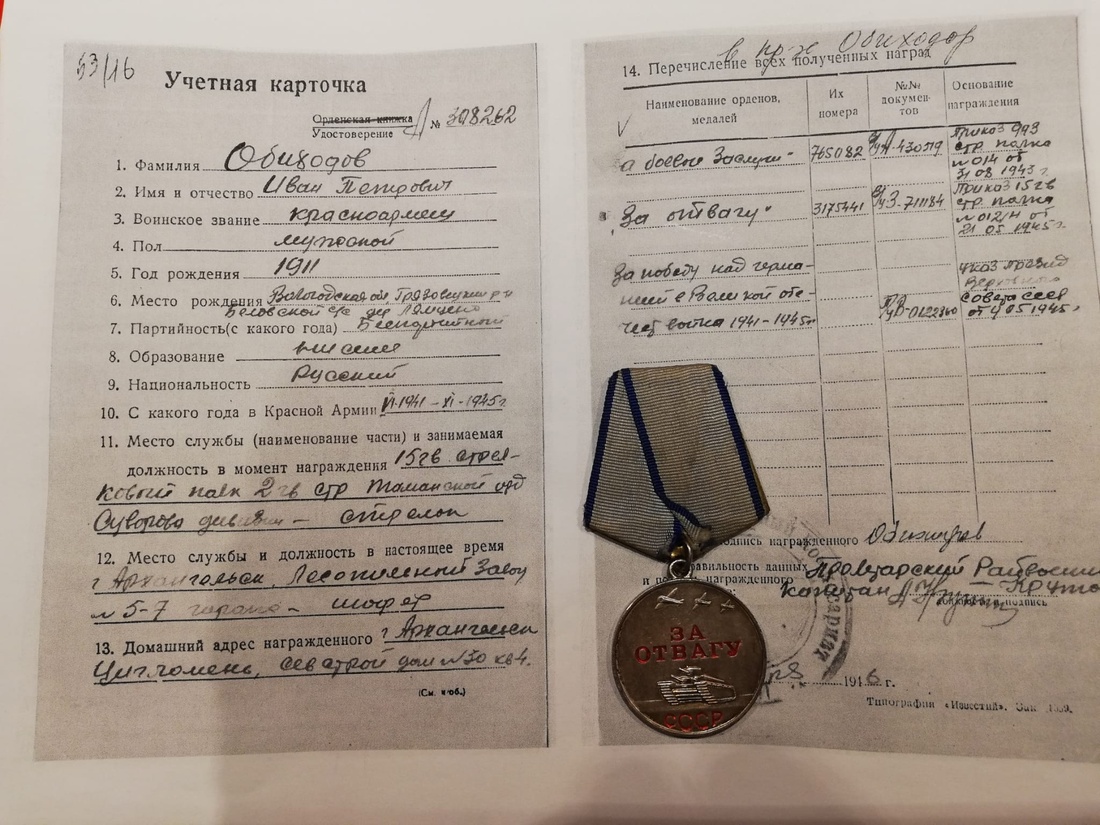 53/16
Учетная карточка
Орденская книжка
Удостоверение № 398262
1. Фамилия Обиходов
2. Имя и отчество Иван Петрович
3. Воинское звание красноармеец
4. Пол мужской
5. Год рождения 1911
6. Место рождения Вологодская
7. Партийность (с какого года) Беспартийный
8. Образование
9. Национальность Русский
10. С какого года в Красной Армии VI-1941 - XI-1945г
11. Место службы (наименование части) и занимаемая
должность в момент награждения 15 гв стрел-
ковый полк 2 гв стр Таманской орд
Суворова дивизии – стрелок
12. Место службы и должность в настоящее время
г Архангельск, Лесопильный завод
№ 5-7 гараж – шофер
13. Домашний адрес награжденного г Архангельск
Цигломень, сев строй дом №30 кв 4.
(См. на об.)
Обиходов
14. Перечисление всех полученных наград
Наименование орденов, медалей
Их номера
№№ документов
Основание награждения
за боевые заслуги
765082
430519
Приказ 993 стр полка №014 от 31 08 1943 г
"За отвагу"
3175441
711184
Приказ 15 гв стр полка от 21 05 1945г
За победу над герма-
нией в Великой оте-
чест войне 1941-1945г
Указ Презид Верховного Совета СССР от 9 05 1945г
подпись награжденного
правильность данных
и подпись награжденного
капитан
подпись
1946 г.
Типография «Известий». Зак
ЗА
ОТВАГУ
СССР